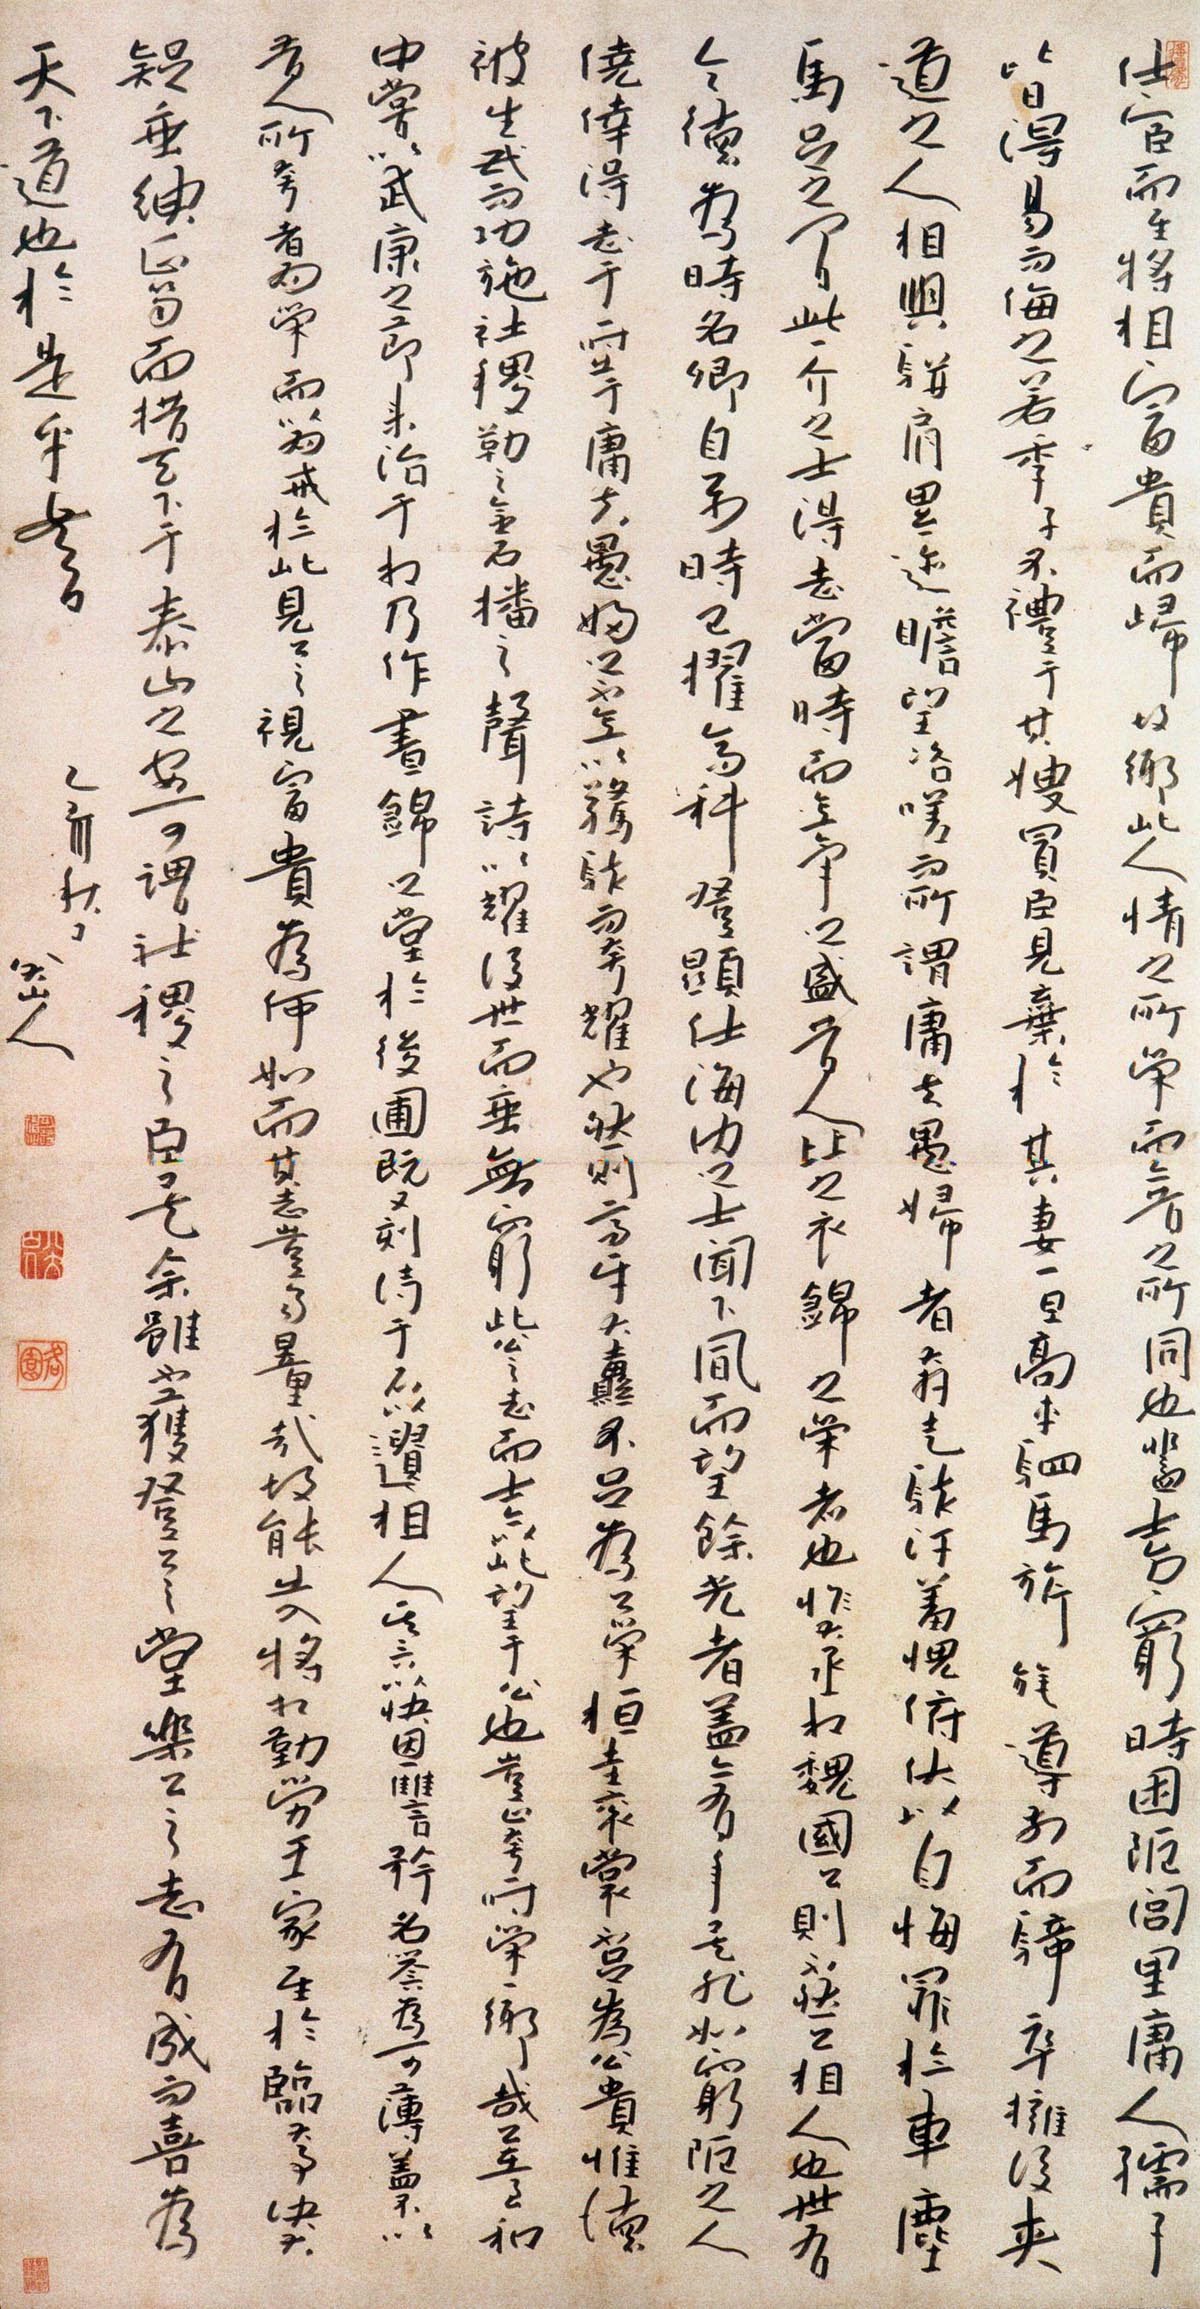 仕宦而至將相富貴而歸故鄉此人情之所榮而今昔之所同也蓋士方窮時困阨閭里庸人孺子
皆得易而侮之若季子不禮于其嫂買臣見棄於其妻一旦高車駟馬旗旄導前而騎卒擁後夾
道之人相與駢肩累迹瞻望咨嗟而所謂庸夫愚婦者奔走駭汗羞愧俯伏以自悔罪於車塵
馬足之間此一介之士得志當時而意氣之盛昔人比之衣錦之榮者也惟大丞相魏國公則不然公相人也世有
令德為時名卿自公少時已擢高科登顯仕海內之士聞下風而望餘光者蓋亦有年矣非如窮阨之人
僥倖得志于一時出于庸夫愚婦之不意以驚駭而夸耀也然則高牙大纛不足為公榮桓圭袞裳不足為公貴惟德
被生民而功施社稷勒之金石播之聲詩以耀後世而垂無窮此公之志而士亦以此望于公也豈止夸一時榮一鄉哉公在至和
中嘗以武康之節來治于相乃作晝錦之堂於後圃既又刻詩于石以遺相人其言以快恩讐矜名譽為可薄蓋不以
昔人所夸者為榮而以為戒於此見公之視富貴為何如而其志豈易量哉故能出入將相勤勞王家至於臨大事決大
疑垂紳正笏而措天下于泰山之安可謂社稷之臣矣余雖不獲登公之堂樂公之志有成而喜為
天下道也於是乎書
乙亥秋日
八大山人